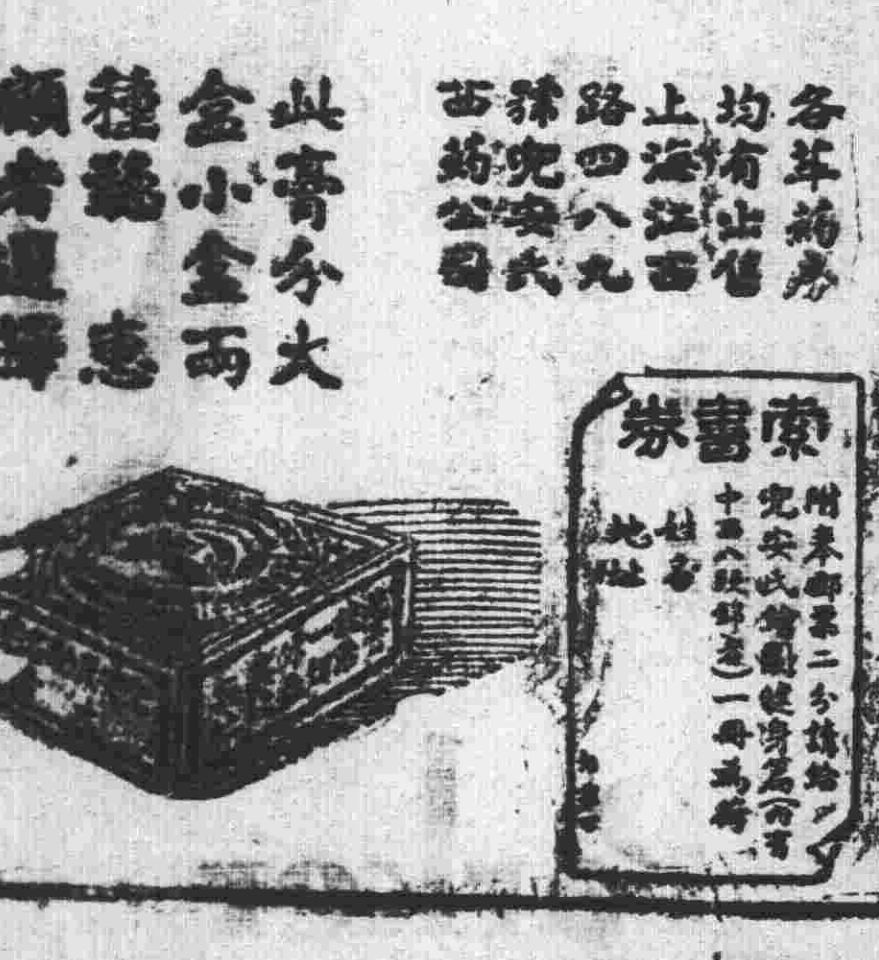 各等药房
均有出售
上海江西
路四八九
號兜安氏
西药公司
此膏分大
盒小盒兩
種聽 惠
顧者選擇
索書券
附奉郵票二分請給
兜安氏繪圖健身篇(内有
中西八段錦產)一册為荷
姓名
地址